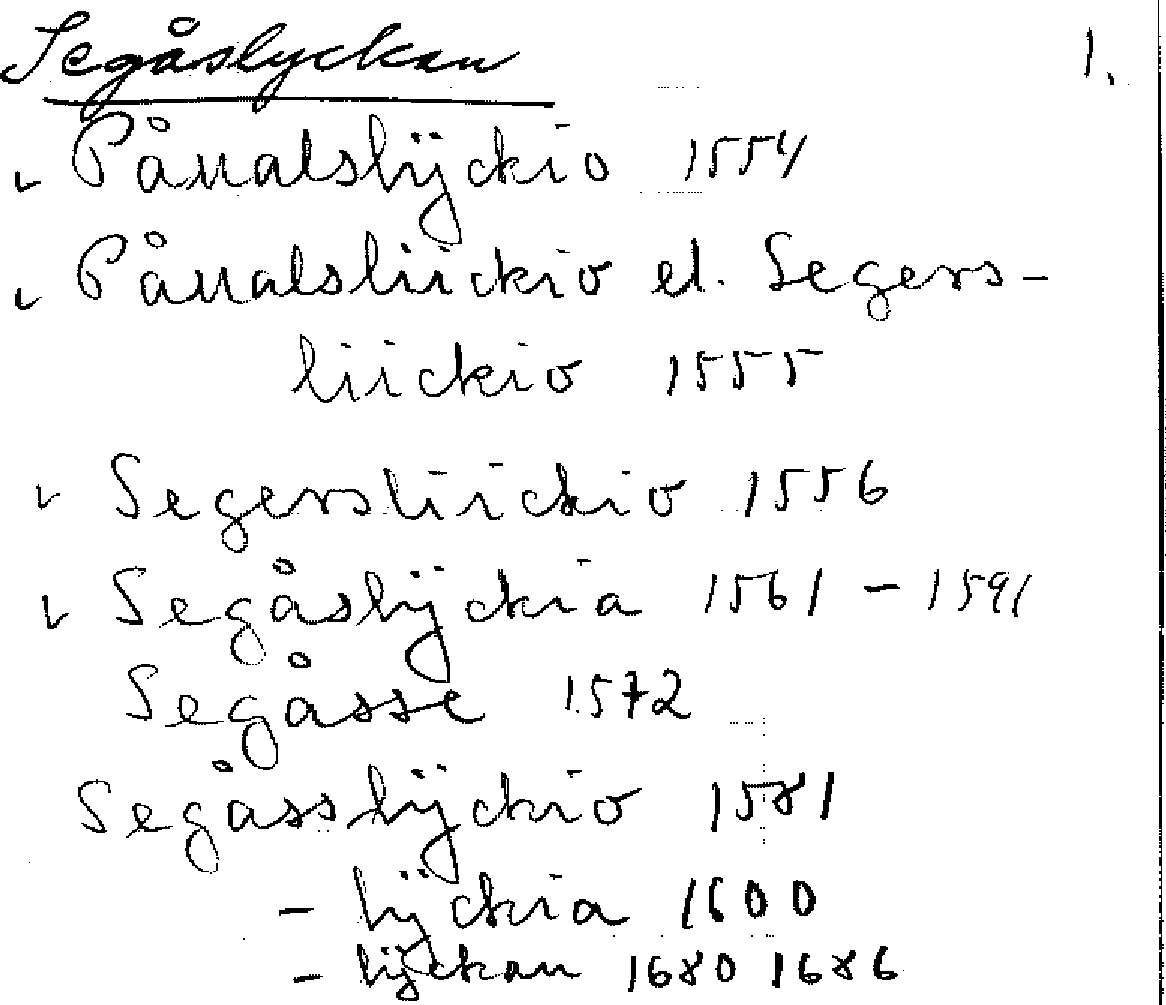 Segåslyckan 1.
Pånalslÿckio 1554
Pånalsliickio el. Segers-
liickio 1555
Segersliickio 1556
Segåslÿckia 1561 - 1591
Segåsse 1572
Segåsslÿckio 1581
- lÿckia 1600
- lÿckan 1680 1686